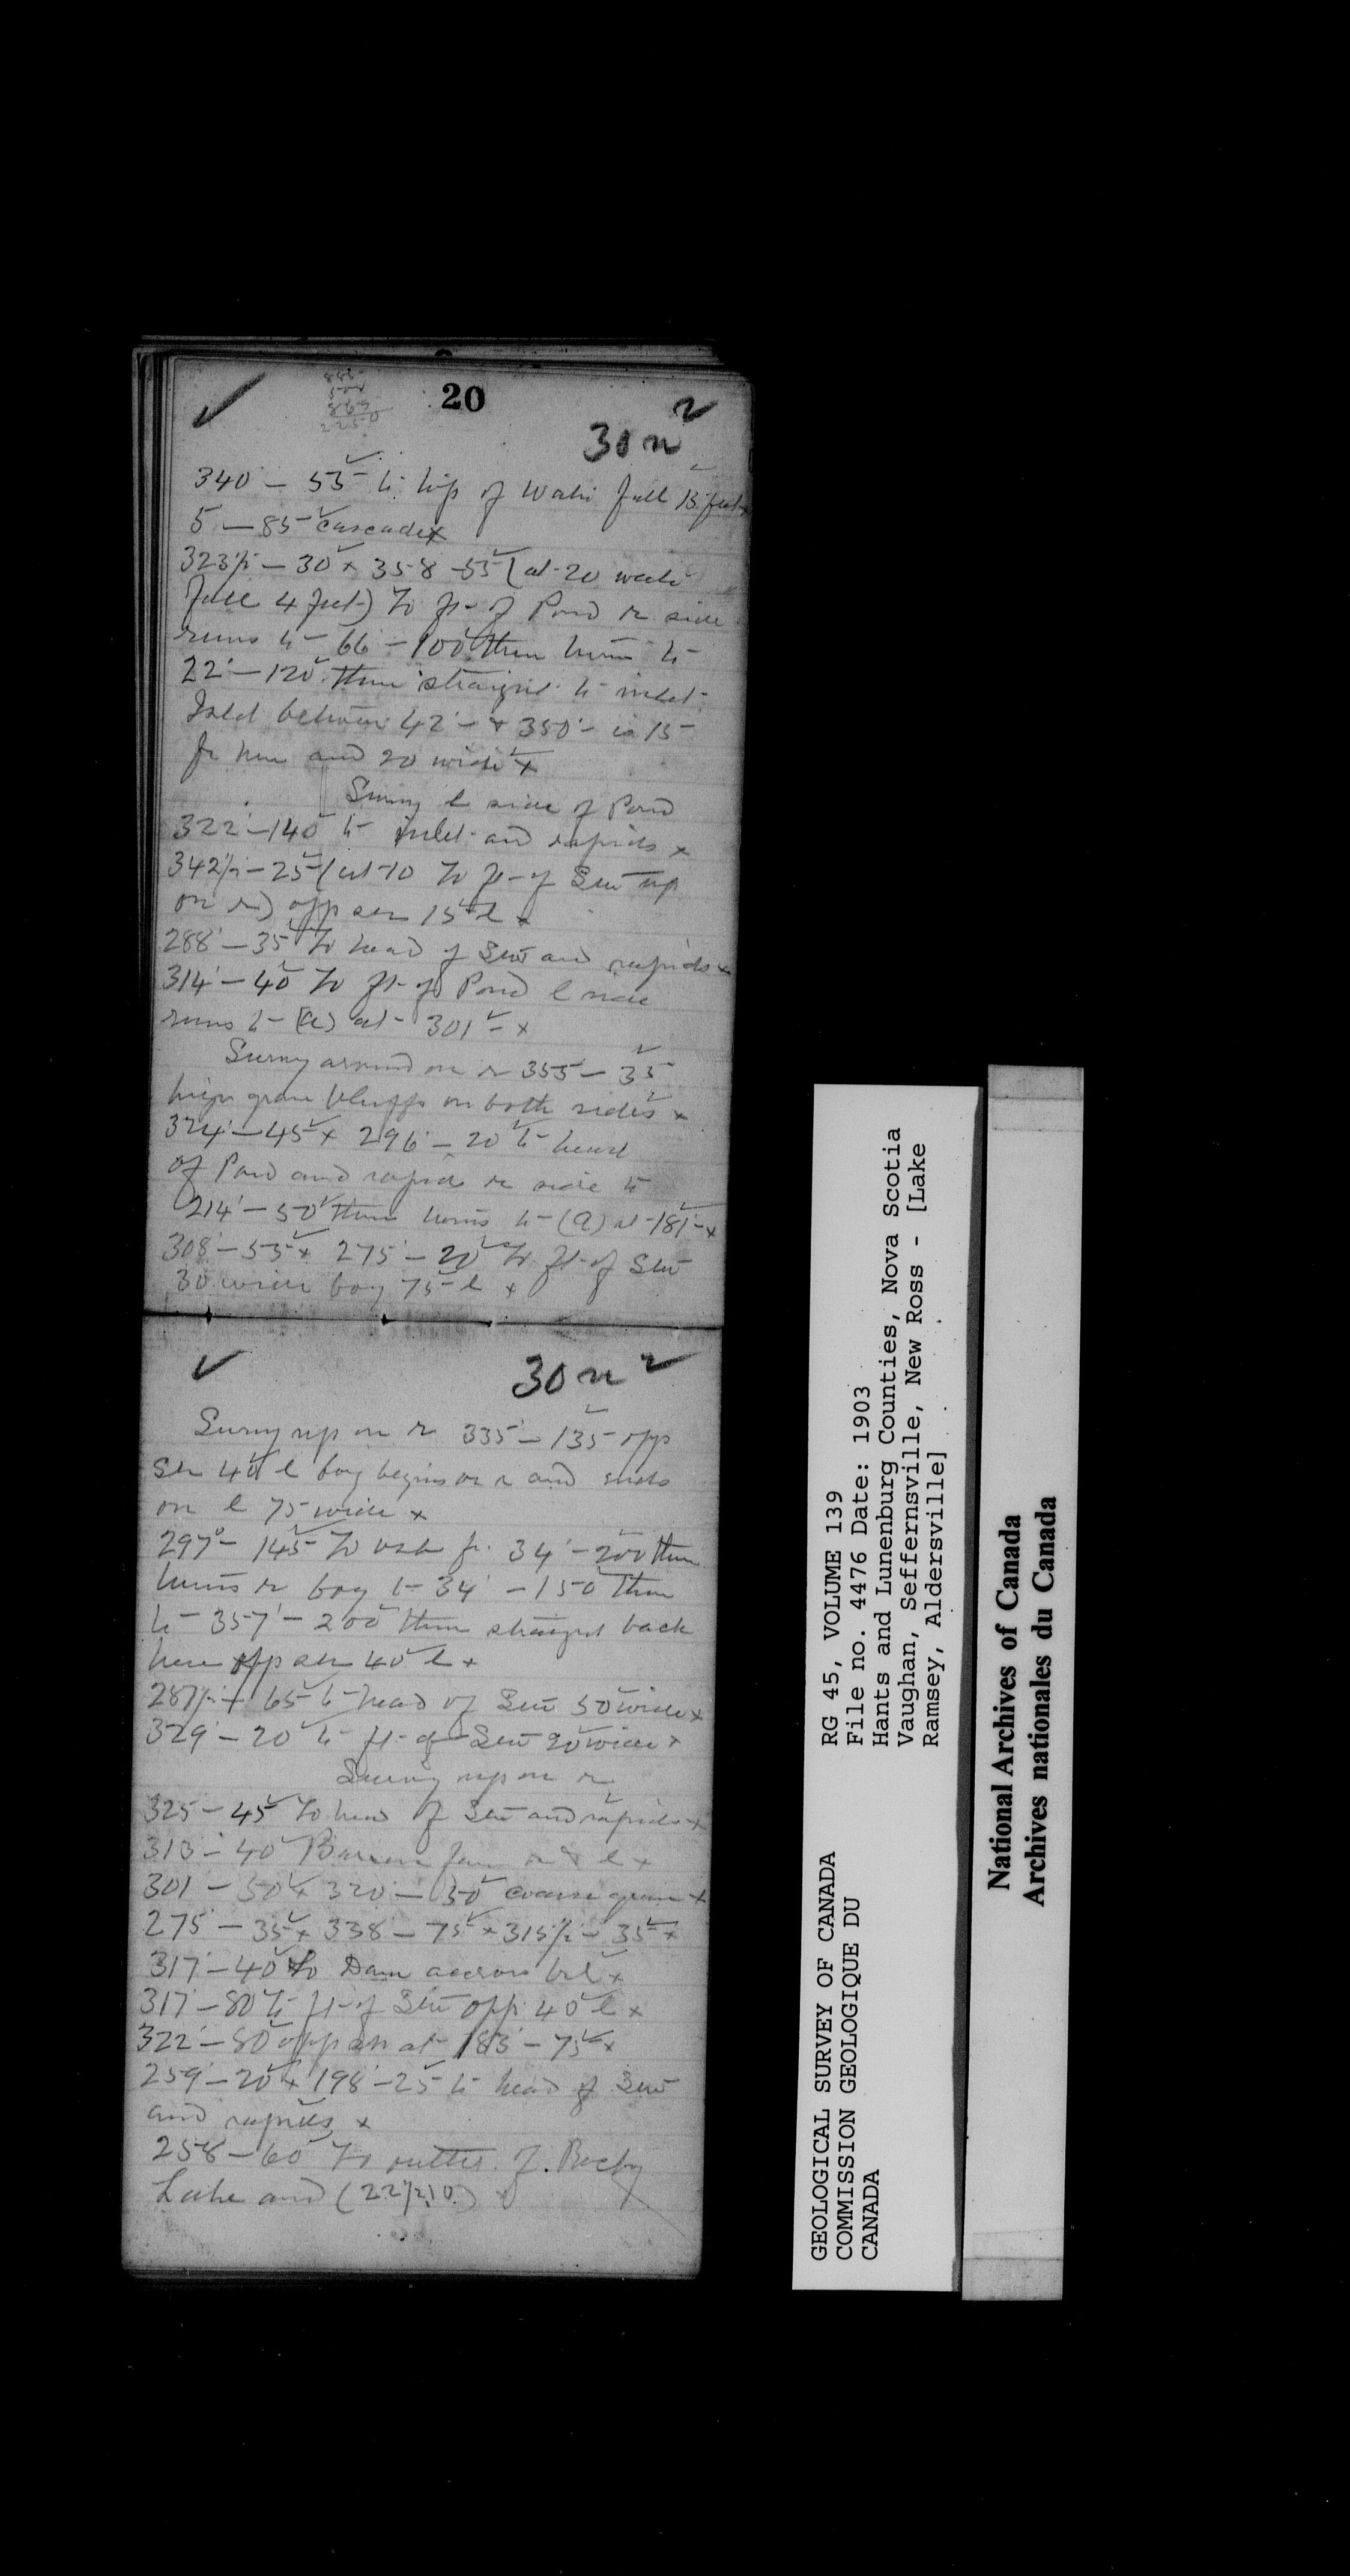 20
30 n 2
340 — 55 to top of Water fall 15 feet x
5 — 85 cascade x
323½ — 30 x 358 — 55 (at 20 water
fall 4 feet) To ft of Pond r side
runs to 66 — 100 then turns to
22 — 120 then straight to inlet
Isld between 42 — & 350 — is 15
fr here and 20 wide x
Survey l side of Pond
322 — 140 to inlet and rapids x
342½ — 25 (at 10 To ft of Stw up
on r) opp 15 l x
288 — 35 To head of Stw and rapids x
314 — 40 To ft of Pond l side
runs to (a) at 301 — x
Survey around on r 355 — 35
high gran bluffs on both sides x
324 — 45 x 296 — 20 to head
of Pond and rapids r side to
214 — 50 then turns to (a) at 181 — x
308 — 55 x 275 — 20 To ft of Stw
30 wide bog 75 l x
30 n 2
Survey up on r 335 — 135 opp
40 l bog begins on r and ends
on l 75 wide x
297° — 145 To fr. 34 — 200 then
turns r bog to 34 — 150 then
to 357 — 200 then straight back
here opp 40 l x
287½ — 65 to head of Stw 50 wide x
329 — 20 to ft of Stw 20 wide x
Survey up on r
325 — 45 To head of Stw and rapids x
313 — 40 Barren r & l x
301 — 50 x 320 — 50 coarse gran x
275 — 35 x 338 — 75 x 315½ — 35 x
317 — 40 To Dam across x
317 — 80 to ft of Stw opp 40 l x
322 — 80 opp at 183 — 75 x
259 — 20 x 198 — 25 to head of Stw
and rapids x
258 — 60 To outlet of Rocky
Lake and (22/210)
GEOLOGICAL SURVEY OF CANADA
COMMISSION GEOLOGIQUE DU
CANADA
RG 45, VOLUME 139
File no. 4476 Date: 1903
Hants and Lunenburg Counties, Nova Scotia
Vaughan, Seffernsville, New Ross - [Lake
Ramsey, Aldersville]
National Archives of Canada
Archives nationales du Canada